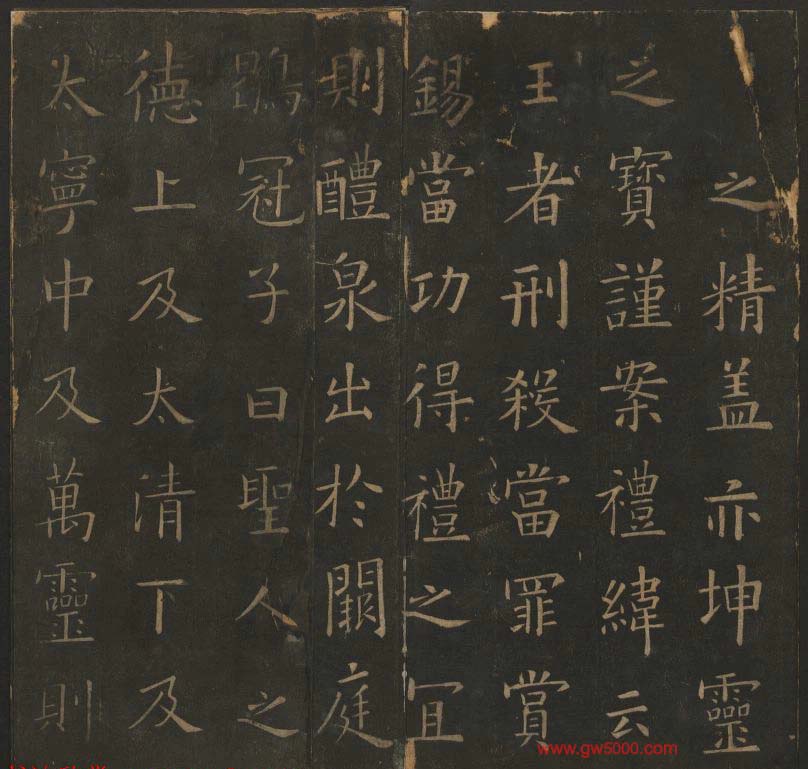 之精盖亦坤靈
之寶謹案禮緯云
王者刑殺當罪賞
錫當功得禮之宜
則醴泉出於闕庭
鶡冠子曰聖人之
德上及太清下及
太寧中及萬靈則
www.gw5000.com